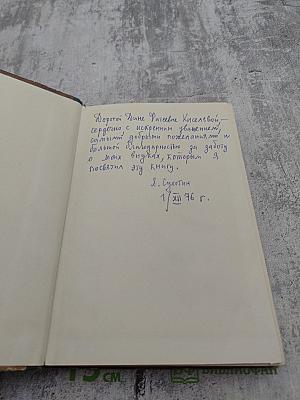 Дорогой Дине Фатеевне Киселевой, —
сердечно, с искренним уважением,
самыми добрыми пожеланиями и
большой благодарностью за заботу
о моих внуках, которым я
посвятил эту книгу.
Я. Сухотин
1/XII 76 г.
15 СМ
БИБЛИОФАН